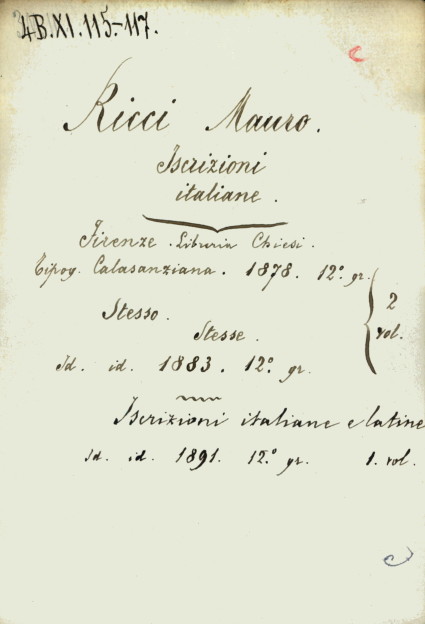 4B.XI.115.-117.
Ricci Mauro.
Iscrizioni
italiane.
Firenze. Libreria Chiesi.
Tipog. Calasanziana. 1878. 12º. gr.
2
vol.
Stesso.
Stesse.
Id. id. 1883. 12º gr.
Iscrizioni italiane e latine
Id. id. 1891. 12.º gr. 1. vol.